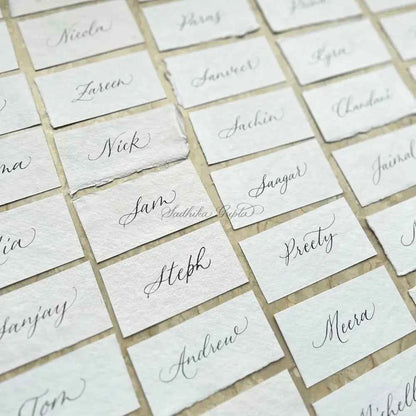 Nicola
Paras
Zareen
Sanveer
Kyra
Nick
Sachin
Chandani
Sam
Saagar
Jaimal
Sadhika Gupta
Steph
Preety
Sanjay
Andrew
Meera
Tom
Michell